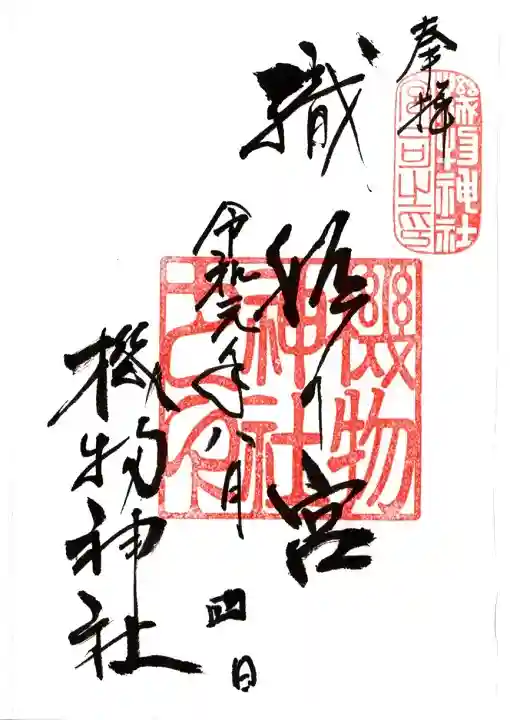 奉拝
機物神社
宮司之印
織姫の宮
機物
神社
之印
令和元年八月四日
機物神社